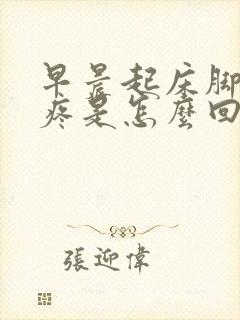 早晨起床脚
疼是怎麽回
張迎偉